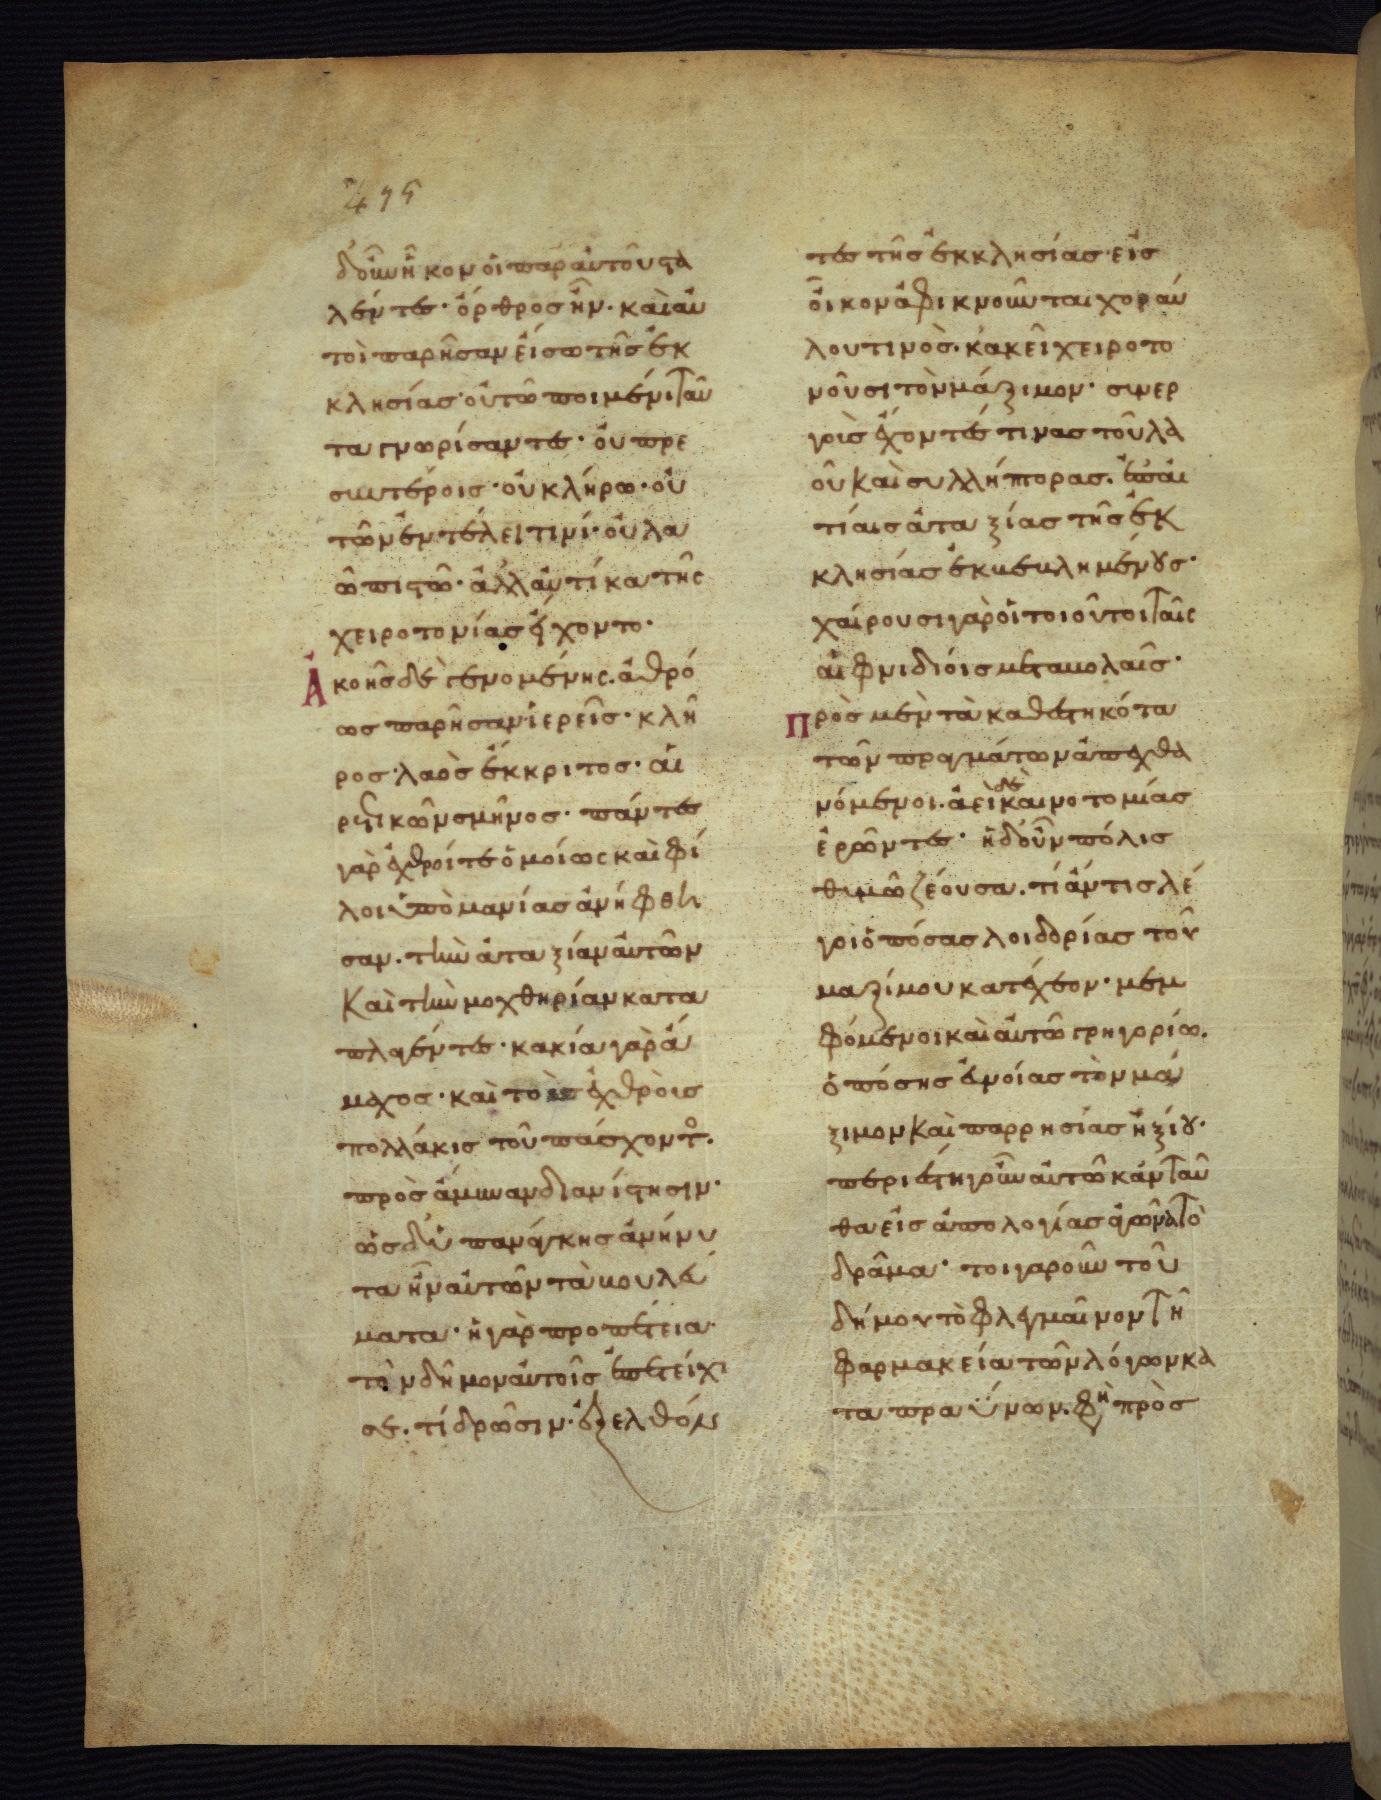 δ' οὖν ἧκον οἱ παρ' αὐτοῦ στα
λέντες· ὄρθρος ἦν· καὶ αὐ
τοὶ παρῆσαν εἴσω τῆς ἐκ
κλησίας· οὔτω ποιμένι ταῦ
τα γνωρίσαντες· οὐ πρε
σβυτέροις· οὐ κλήρω· οὐ
τῶν ἐν τέλει τινί· οὐ λα
ῶ πιστῶ· ἀλλ' αὐτίκα τῆς
χειροτονίας εἴχοντο·
Ἀκοῆς δὲ γενομένης. ἀθρό
ως παρῆσαν ἱερεῖς· κλῆ
ρος· λαὸς ἔκκριτος· αἱ
ρετικῶν σμῆνος· πάντες
γὰρ ἐχθροί τε ὁμοίως καὶ φί
λοι ὑπὸ μανίας ἀνήφθη
σαν. τὴν ἀταξίαν αὐτῶν
καὶ τὴν μοχθηρίαν κατα
πλαγέντες· κακία γὰρ ἄ
μαχος· καὶ τοὺς ἐχθροὺς
πολλάκις τοῦ πάσχοντος.
πρὸς ἄμυναν διανίστησιν·
ὡς δ' ὑπ' ἀνάγκης ἀνήνυ
τα ἦν αὐτῶν τὰ βουλεύ
ματα· ἡ γὰρ προπέτεια
τὸν δῆμον αὐτοῖς ἐπετείχι
σε. τί δρῶσιν· ἐξελθόν
τες τῆς ἐκκλησίας· εἰς
οἶκον ἀφικνοῦνται χοραύ
λου τινός· κἀκεῖ χειροτο
νοῦσι τὸν μάξιμον· συνερ
γοὺς ἔχοντές τινας τοῦ λα
οῦ καὶ συλλήπτορας. ἐπ' αἰ
τίαις ἀταξίας τῆς ἐκ
κλησίας ἐκβεβλημένους·
χαίρουσι γὰρ οἱ τοιοῦτοι ταῖς
αἰφνιδίοις μεταβολαῖς·
Πρὸς μὲν τὰ καθεστηκότα
τῶν πραγμάτων ἀπεχθα
νόμενοι. ἀεὶ δὲ καινοτομίας
ἐρῶντες· ἡ δ' οὖν πόλις
θυμῶ ζέουσα. τί ἄν τις λέ
γοι ὁπόσας λοιδορίας τοῦ
μαξίμου κατέχεον· μεμ
φόμενοι καὶ αὐτῶ γρηγορίω.
ὁπόσης εὐνοίας τὸν μά
ξιμον καὶ παρρησίας ἠξίου·
περιέστη γοῦν αὐτῶ κἀνταῦ
θα εἰς ἀπολογίας ἀγῶνα τὸ
δρᾶμα· τοιγαροῦν τοῦ
δήμου τὸ φλεγμαῖνον τῆ
φαρμακεία τῶν λόγων κα
ταπραΰνων. φη πρὸς